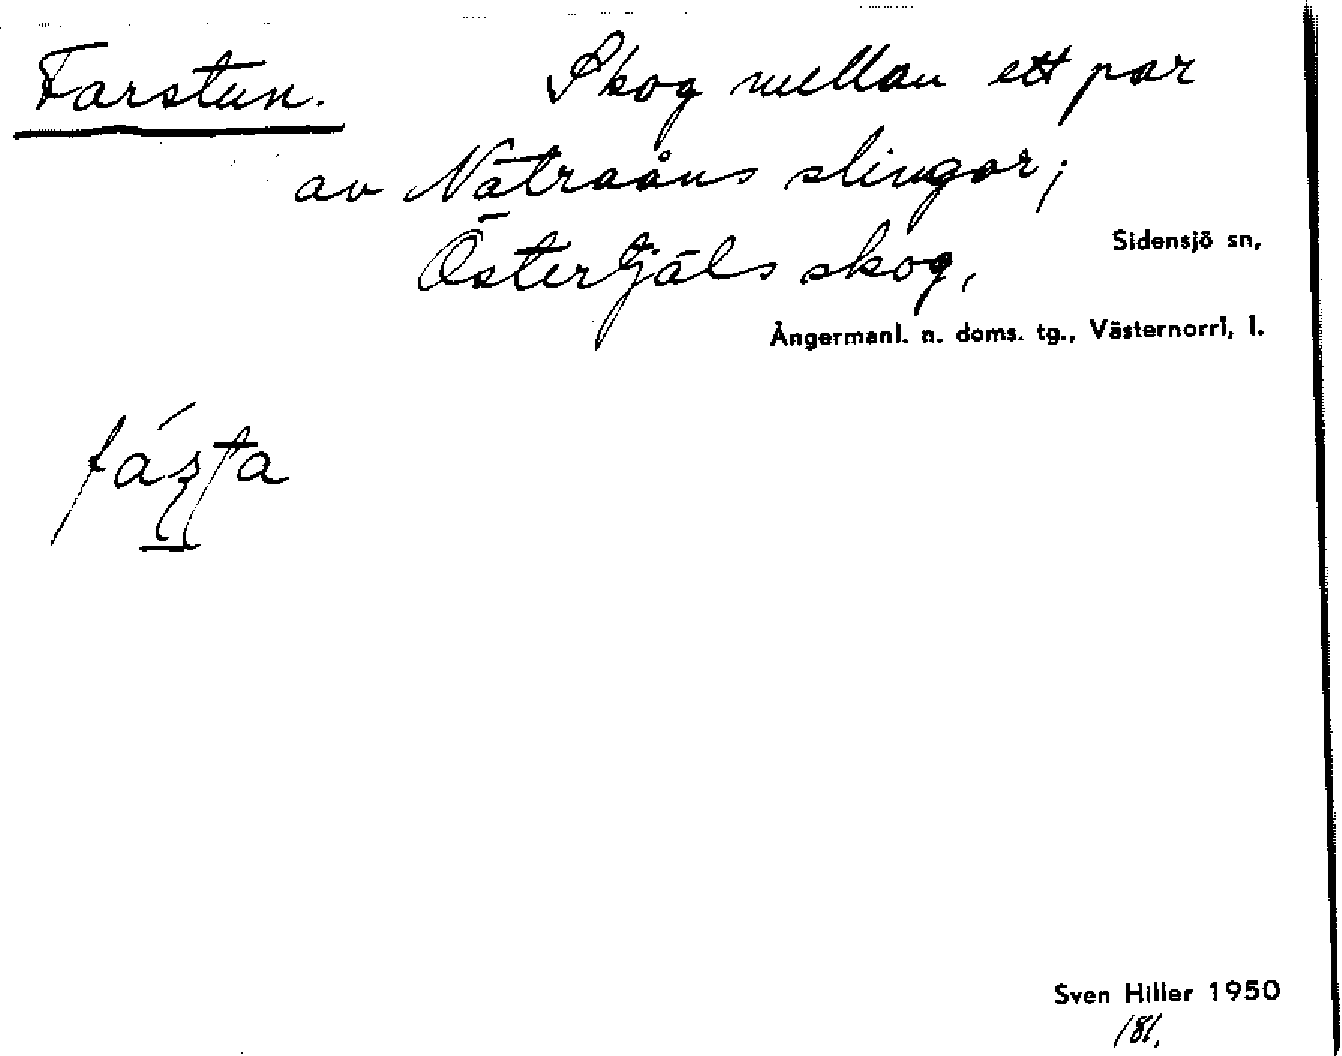 Farstun. Skog mellan ett par
av Nätraåns slingor;
Östertjäls skog,
Sidensjö sn,
Ångermanl. n. doms. tg., Västernorrl. l.
Sven Hiller 1950
181.